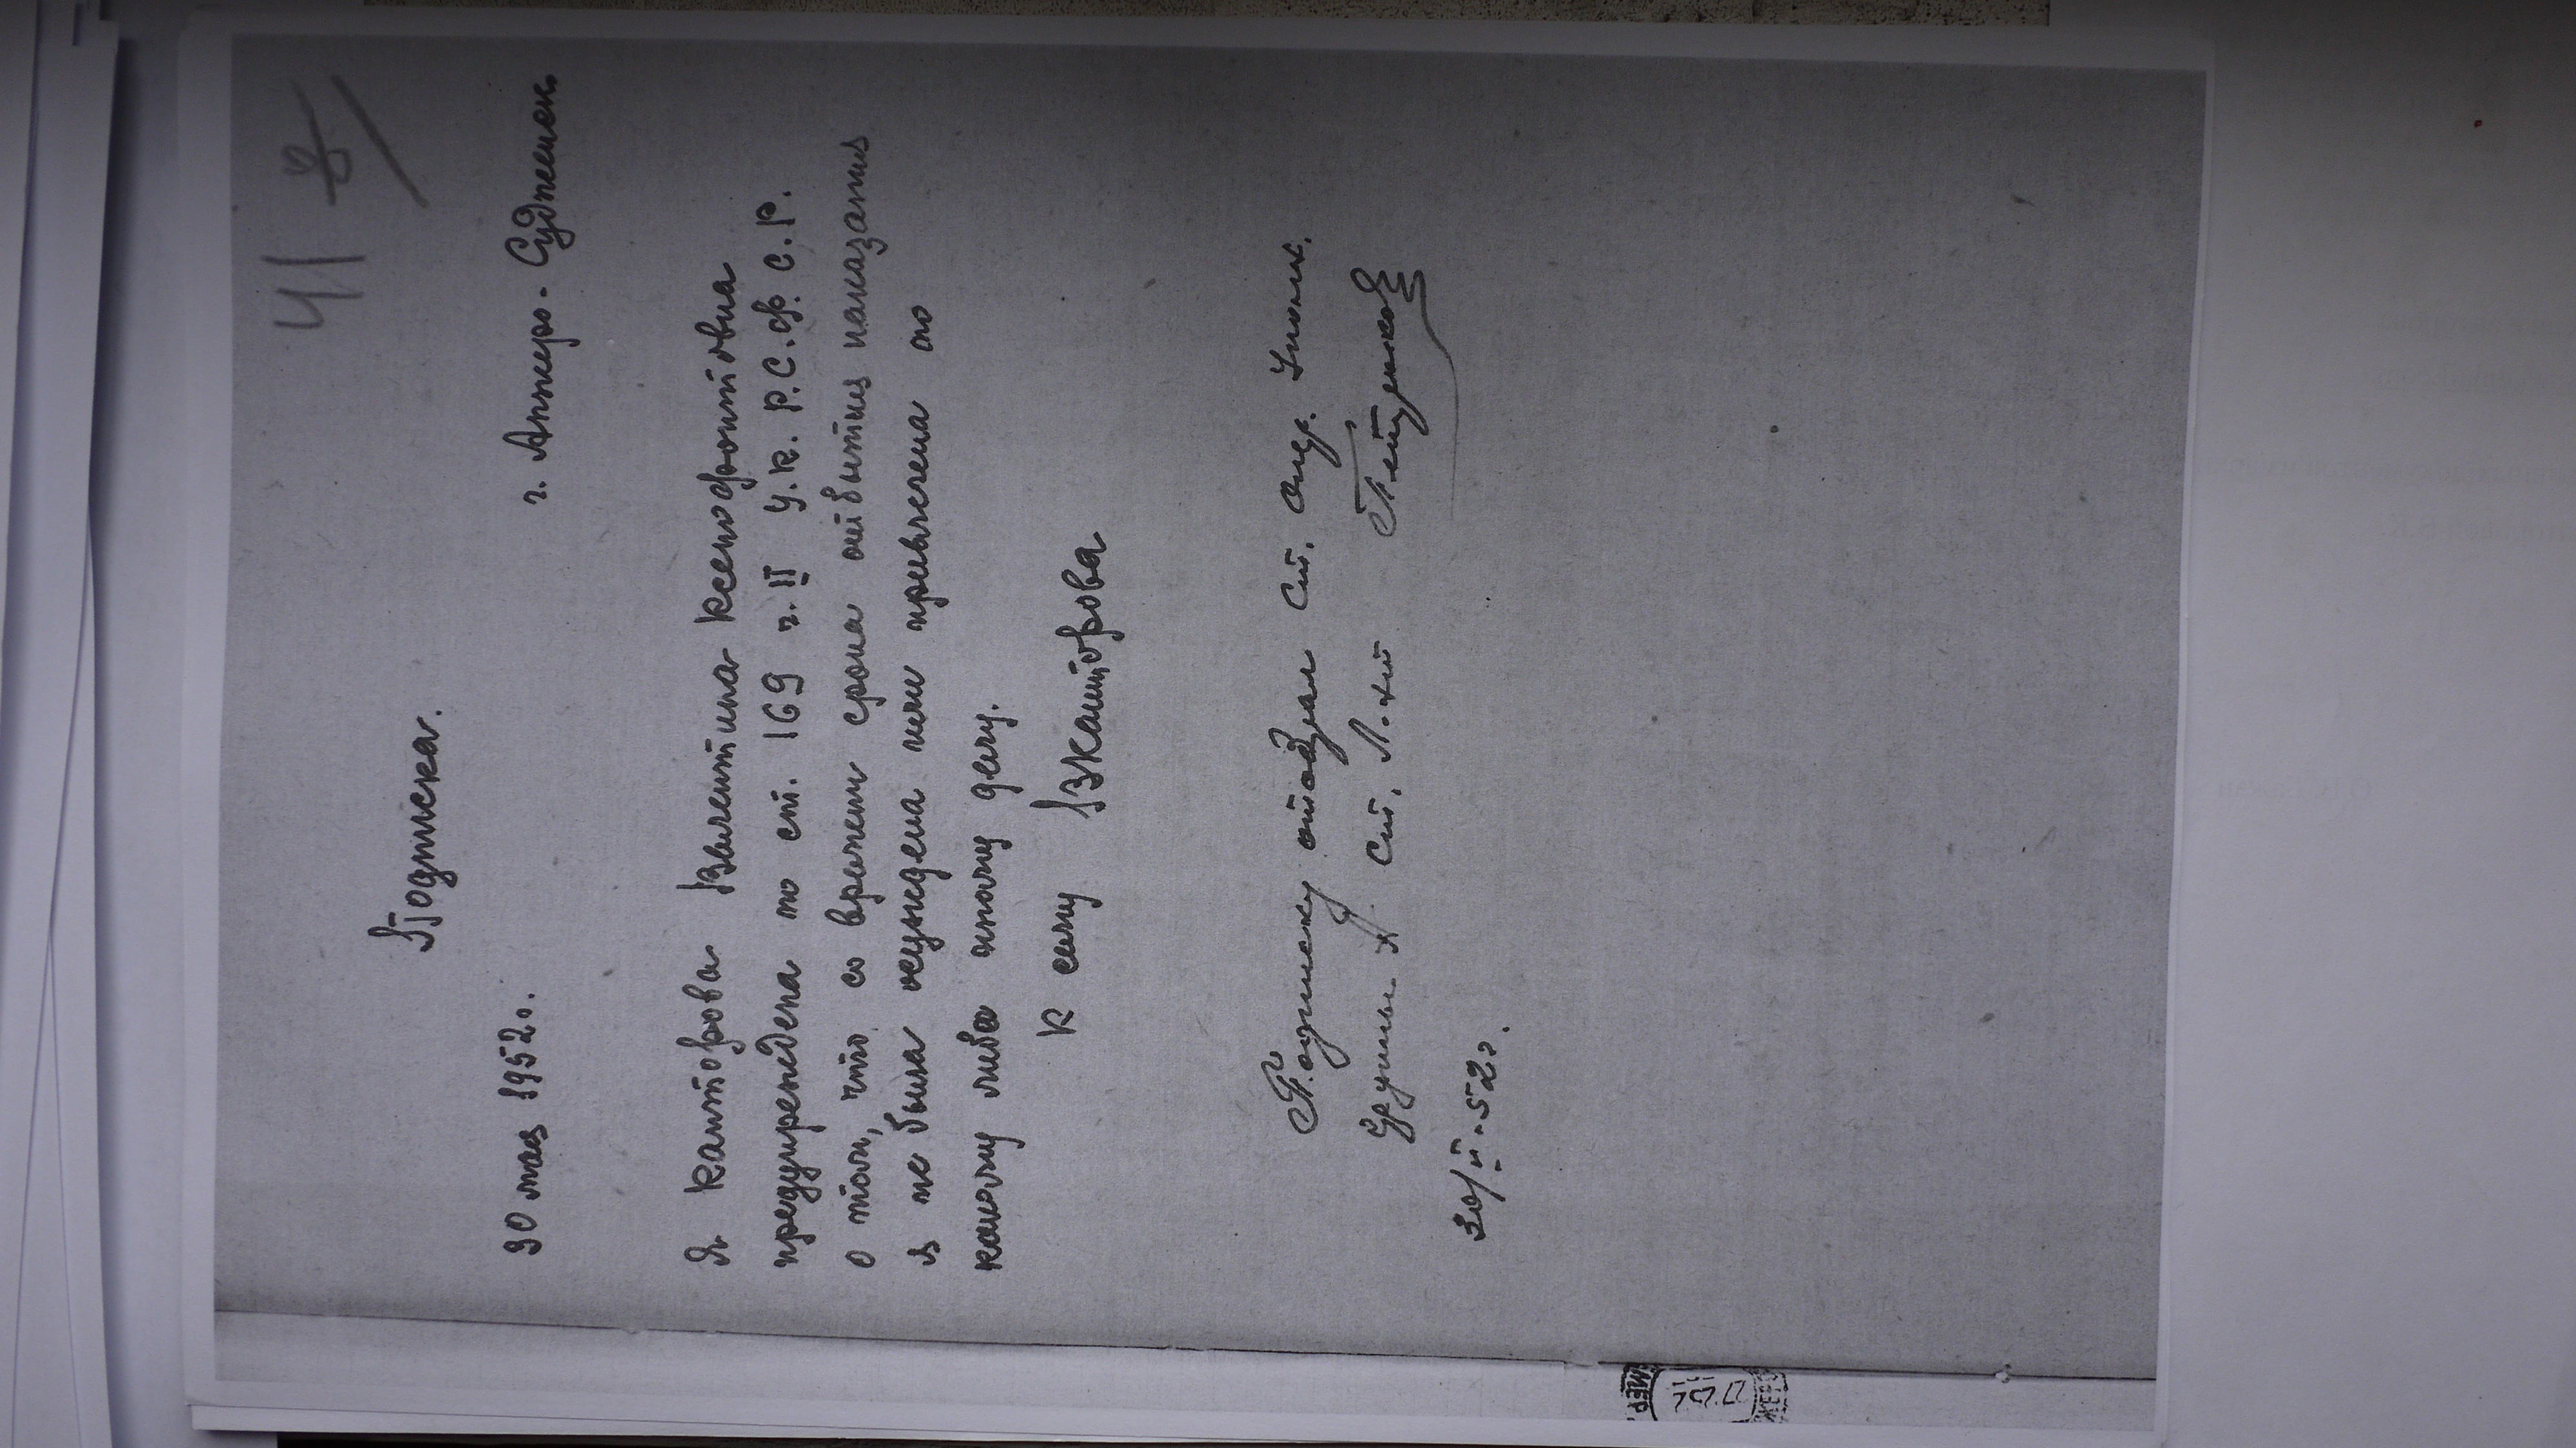 41
Подписка.
30 мая 1952г. г. Анжеро-Судженск
Я Канторова Валентина Ксенофонтовна
предупреждена по ст. 169 ч. II У.К. Р.С.Ф.С.Р.
о том, что со времени срока отбытия наказания
я не была осуждена или привлечена по
какому либо иному делу.
К сему ВКанторова
Подписку отобрал Ст. Опер. Уполн.
Ст. Л-нт
30/V-52г.